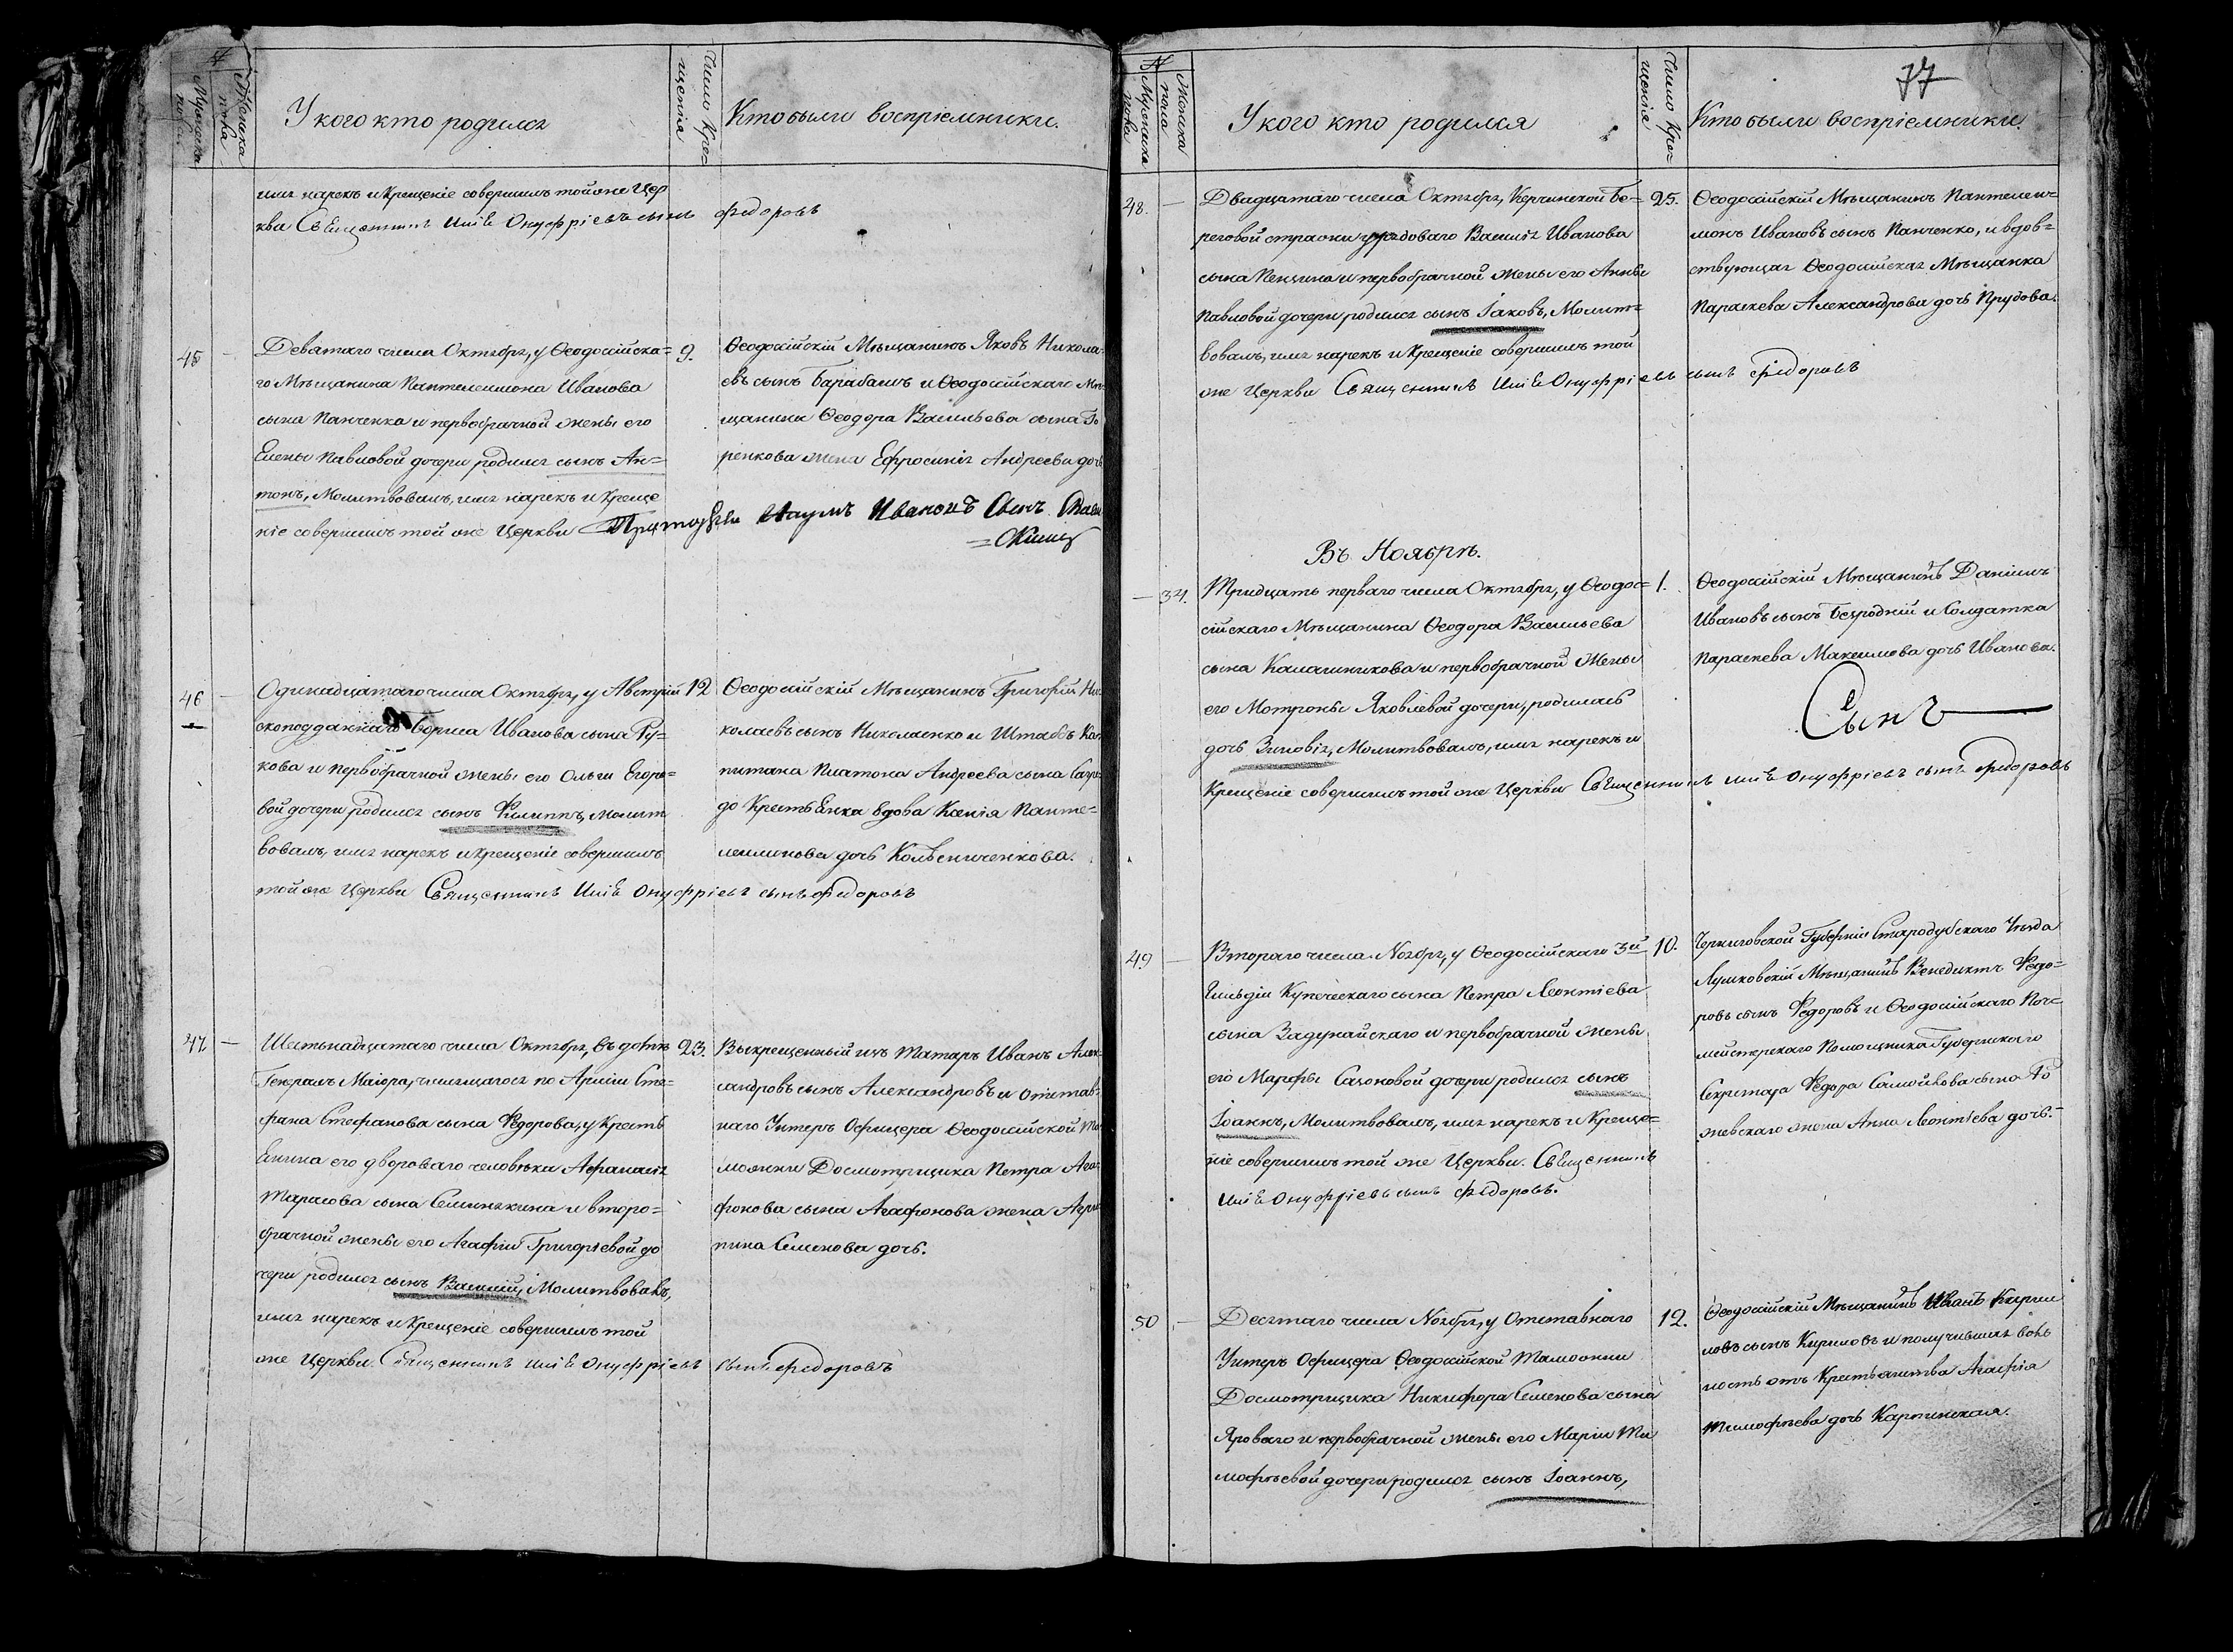 №
Женска
пола
Мужеска
пола
У кого кто родился
Число Кре=
щенія
Кто были воспріемники.
имя нарекъ и Крещеніе совершилъ той же Цер
ква Священникъ Илія Онуфріевъ сынъ Федоровъ
45
Деватаго числа Октября, у Ѳеодосійска=
го Мѣщанина Пантелеимона Иванова
сына Панченка и первобрачной жены его
Елены Павловой дочери родился сынъ Ан=
тонъ, Молитвовалъ, имя нарекъ и Креще
ніе совершилъ той же Церкви Протоіерей Наумъ Ивановъ Сынъ
9.
Ѳеодосійскій Мѣщанинъ Яковъ Никола=
евъ сынъ Барабашъ и Ѳеодосійскаго Мѣ
щанина Ѳеодора Васильева сына Го
ренкова жена Ефросинія Андреева дочь
46
Одинадцатаго числа Октября, у Австрій
скоподданнаго Бориса Иванова сына Ру=
кова и первобрачной жены его Ольги Егоро=
вой дочери родился сынъ Филиппъ, молит
вовалъ, имя нарекъ и Крещеніе совершилъ
той же Церкви Священникъ Илія Онуфріевъ сынъ Федоровъ
12
Ѳеодосійскій Мѣщанинъ Григорій Ни=
колаевъ сынъ Николаенко и Штабсъ Ка
питана Платона Андреева сына
до Крестьянка вдова Ксенія Панте=
леимонова дочь Колѣсниченкова.
47
Шестьнадцатаго числа Октября, въ домѣ
Генералъ Маіора, числящагося по Арміи Сте=
фана Стефанова сына Федорова, у Кресть
янина его двороваго человѣка Афанасія
Тарасова сына Семинякина и второ=
брачной жены его Агафіи Григоріевой до
чери родился сынъ Василій, Молитвовалъ,
имя нарекъ и Крещеніе совершилъ той
же Церкви. Священникъ Илія Онуфріевъ сынъ Федоровъ
23.
Выкрещенный изъ Татаръ Иванъ Алек=
сандровъ сынъ Александровъ и отстав=
наго Унтеръ Офицера Ѳеодосійской Та
можни Досмотрщика Петра Ага=
фонова сына Агафонова жена Агри
пина Семенова дочь.
77
№
Женска
пола
Мужеска
пола
У кого кто родился
Число Кре=
щенія
Кто были воспріемники.
48.
Двадцатаго числа Октября, Керчинской Бе=
реговой стражи рядоваго Василія Иванова
сына Пенцина и первобрачной жены его Анны
Павловой дочери родился сынъ Іаковъ, Молит=
вовалъ, имя нарекъ и Крещеніе совершилъ той
же Церкви Священникъ Илія Онуфріевъ сынъ Федоровъ
25.
Ѳеодосійскій Мѣщанинъ Пантелеи=
монъ Ивановъ сынъ Панченко, и вдов=
ствующая Ѳеодосійская Мѣщанка
Параскева Александрова дочь Прудова.
Въ Ноябрѣ.
34.
Тридцать перваго числа Октября, у Ѳеодос=
сійскаго Мѣщанина Ѳеодора Васильева
сына Калашникова и первобрачной Жены
его Мотроны Яковлевой дочери, родилась
дочь Зиновія, Молитвовалъ, имя нарекъ и
Крещеніе совершилъ той же Церкви Священникъ Илія Онуфріевъ сынъ Федоровъ
1.
Ѳеодосійскій Мѣщанинъ Даніилъ
Ивановъ сынъ Безродній и Солдатка
Параскева Максимова дочь Иванова.
Сынъ
49
Втораго числа Ноября, у Ѳеодосійскаго 3й
Гильдіи Купеческаго сына Петра Леонтіева
сына Задунайскаго и первобрачной жены
его Марфы Сазоновой дочери родился сынъ
Іоаннъ, Молитвовалъ, имя нарекъ и Креще=
ніе совершилъ той же Церкви. Священникъ
Илія Онуфріевъ сынъ Федоровъ.
10.
Черниговской Губерніи Стародубскаго Уѣзда
Лужковскій Мѣщанинъ Венедиктъ Федо=
ровъ сынъ Федоровъ и Ѳеодосійскаго Поч=
мейстерскаго Помощника Губернскаго
Секретаря Федора Самойлова сына Ро
жевскаго жена Анна Леонтіева дочь.
50
Десятаго числа Ноября, у Отставнаго
Унтеръ Офицера Ѳеодосійской Таможни
Досмотрщика Никифора Семенова сына
Яроваго и первобрачной жены его Маріи Ти
мофѣевой дочери родился сынъ Іоаннъ,
12.
Ѳеодосійскій Мѣщанинъ Иванъ Кирил
ловъ сынъ Кириловъ и получившая воль
ность отъ Крестьянства Агафія
Тимофѣева дочь Карпинская.